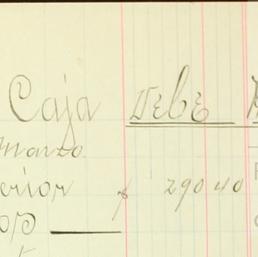 Caja DEBE
Marzo
erior $ 290 40